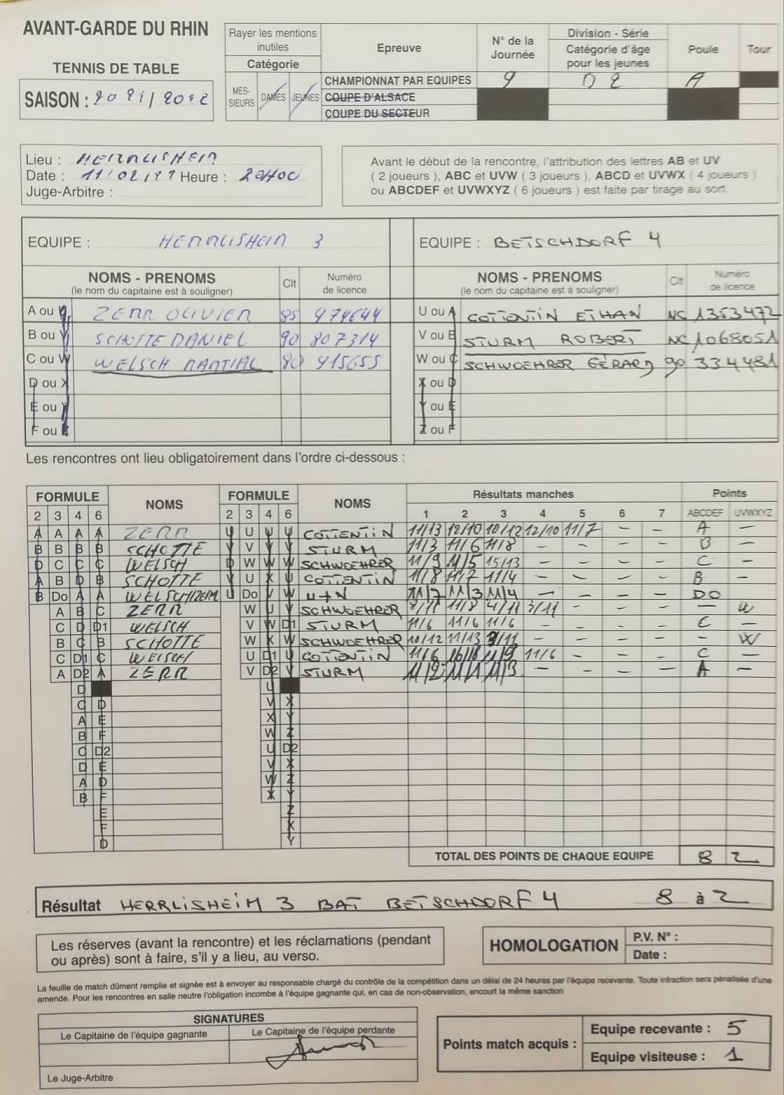 AVANT-GARDE DU RHIN
TENNIS DE TABLE
SAISON :
Rayer les mentions inutiles
Catégorie
MES-SIEURS DAMES JEUNES
Epreuve
CHAMPIONNAT PAR EQUIPES
COUPE D'ALSACE
COUPE DU SECTEUR
N° de la Journée
9
Division - Série
Catégorie d'âge pour les jeunes
D2
Poule
A
Tour
Lieu : HERRLISHEIM
Date : Heure : 20H00
Juge-Arbitre :
Avant le début de la rencontre, l'attribution des lettres AB et UV
( 2 joueurs ), ABC et UVW ( 3 joueurs ), ABCD et UVWX ( 4 joueurs )
ou ABCDEF et UVWXYZ ( 6 joueurs ) est faite par tirage au sort.
EQUIPE : HERRLISHEIM 3
EQUIPE : BETSCHDORF 4
NOMS - PRENOMS Clt Numéro
(le nom du capitaine est à souligner) de licence
NOMS - PRENOMS Clt Numéro
(le nom du capitaine est à souligner) de licence
A ou ZERR OLIVIER 85 974644
B ou SCHOTTE DANIEL 90 807314
C ou W WELSCH MARTIAL 80 915655
D ou X
E ou Y
F ou
U ou A COTTENTIN ETHAN NC 1353472
V ou B STURM ROBERT NC 1068051
W ou C SCHWOEHRER GÉRARD 90 334481
X ou D
Y ou E
Z ou F
Les rencontres ont lieu obligatoirement dans l'ordre ci-dessous :
FORMULE NOMS FORMULE NOMS Résultats manches Points
2 3 4 6 2 3 4 6 1 2 3 4 5 6 7 ABCDEF UVWXYZ
A A A A ZERR U U U U COTTENTIN 11/13 12/10 10/12 12/10 11/7 - - A -
B B B B SCHOTTE V V V V STURM 11/3 11/6 11/8 - - - - B -
C C C WELSCH W W W SCHWOEHRER 11/9 11/5 15/13 - - - - C -
A B D B SCHOTTE V U X U COTTENTIN 11/8 11/7 11/4 - - - - B -
B Do A A WELSCH/ZERR U Do V W U+V 11/7 11/3 11/4 - - - - DO -
A B C ZERR W U V SCHWOEHRER 11/8 4/11 3/11 - - - - W
C D D1 WELSCH V W D1 STURM 11/6 11/6 11/6 - - - - C -
B C B SCHOTTE W X W SCHWOEHRER 10/12 11/13 - - - - - W
C D1 C WELSCH U D1 U COTTENTIN 11/6 16/18 11/9 11/6 - - - C -
A D2 A ZERR V D2 V STURM 11/2 11/1 11/3 - - - - A -
D U
C D V X
A E X Y
B F W Z
C D2 U D2
D E V X
A D W Z
B F X Y
E Z
F X
D Y
TOTAL DES POINTS DE CHAQUE EQUIPE 8 2
Résultat HERRLISHEIM 3 BAT BETSCHDORF 4 8 à 2
Les réserves (avant la rencontre) et les réclamations (pendant
ou après) sont à faire, s'il y a lieu, au verso.
HOMOLOGATION
P.V. N° :
Date :
La feuille de match dûment remplie et signée est à envoyer au responsable chargé du contrôle de la compétition dans un délai de 24 heures par l'équipe recevante. Toute infraction sera pénalisée d'une
amende. Pour les rencontres en salle neutre l'obligation incombe à l'équipe gagnante qui, en cas de non-observation, encourt la même sanction
SIGNATURES
Le Capitaine de l'équipe gagnante
Le Capitaine de l'équipe perdante
Le Juge-Arbitre
Points match acquis :
Equipe recevante : 5
Equipe visiteuse : 1